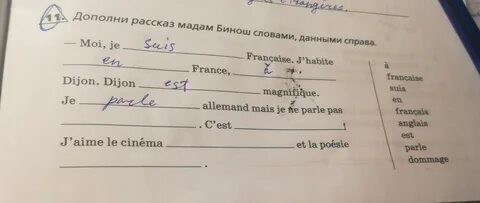 11. Дополни рассказ мадам Бинош словами, данными справа.
— Moi, je suis Française. J'habite
en France, à
Dijon. Dijon est magnifique.
Je parle allemand mais je ne parle pas
. C'est !
J'aime le cinéma et la poésie
.
à
française
suis
en
français
anglais
est
parle
dommage